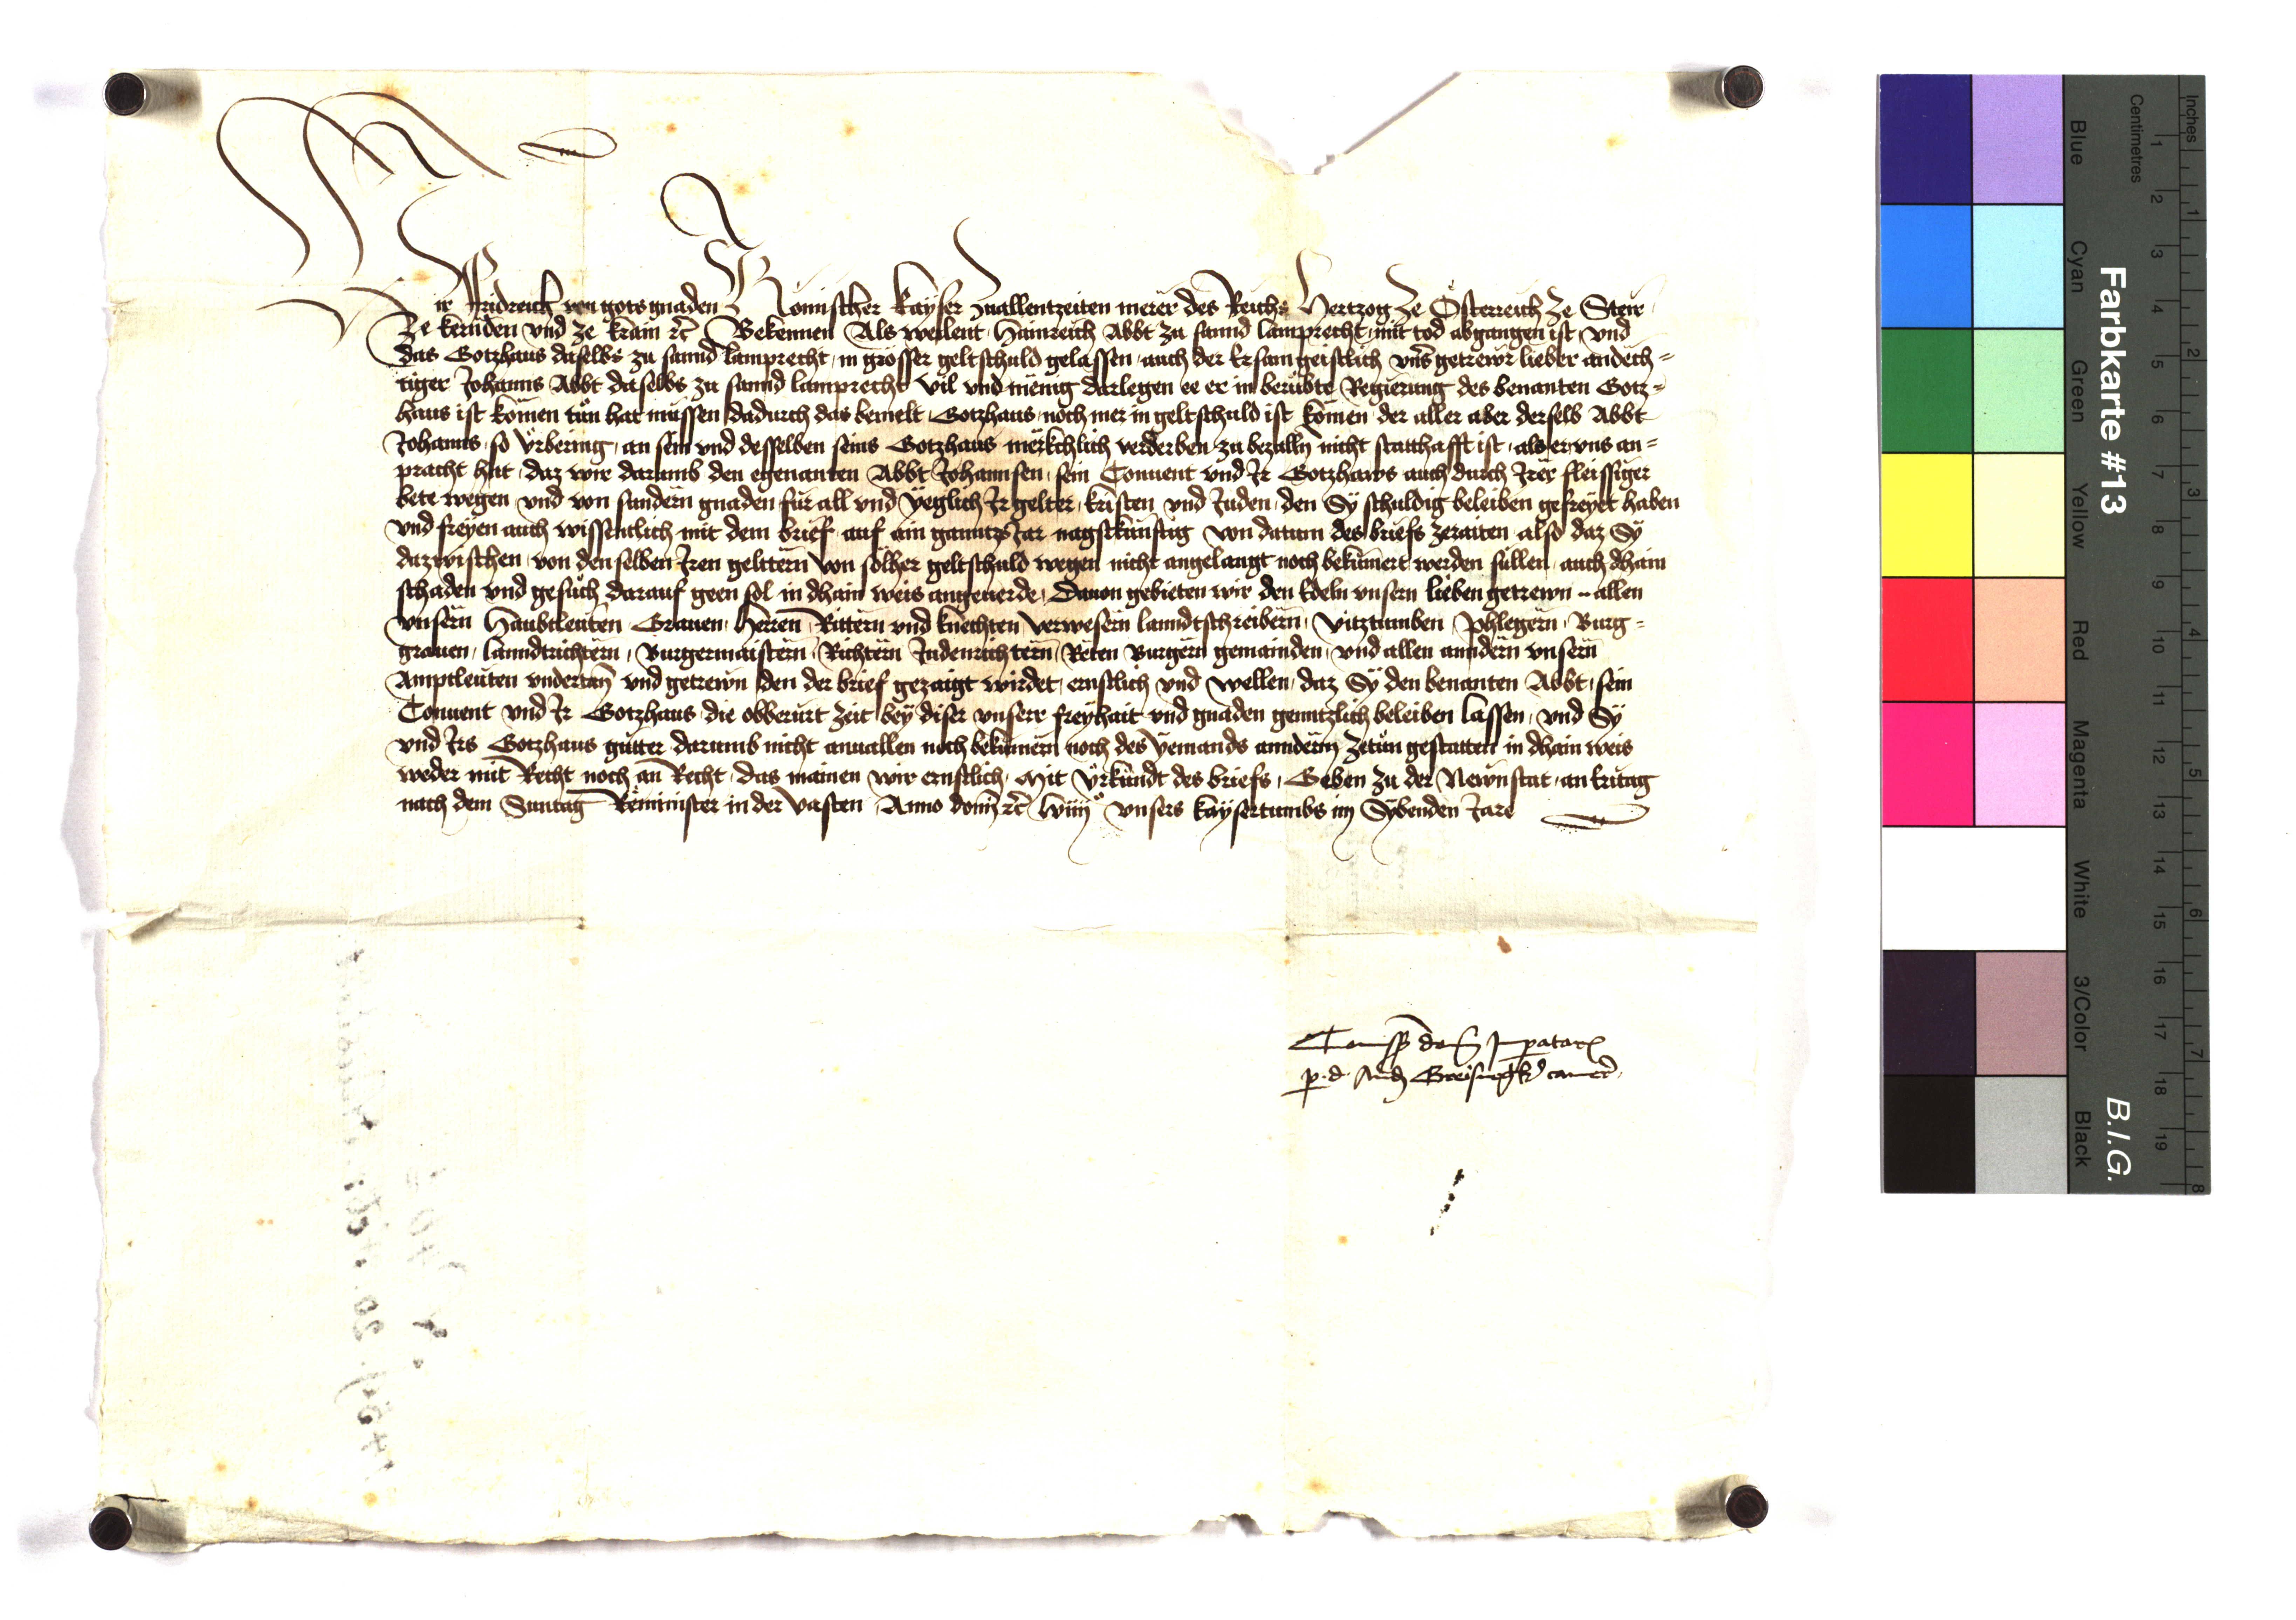 Wir Fridreich von gots gnaden Romischer kayser zuallentzeiten merer des Reichs Hertzog ze Österreich ze Steir
ze kernden vnd ze krain etc Bekennen Als weilent Hainreich Abbt zu sannd lamprecht mit tod abgangen ist, vnd
das Gotzhaus daselbs zu sannd lamprecht, in grosser geltschuld gelassen, auch der Ersam geistlich vnser getrewr lieber andech=
tiger Johanns Abbt daselbs zu sannd lamprecht vil vnd menig darlegen ee er in berubte Regierung des benanten Gotz=
haus ist komen tün hat müssen dadurch das bemelt Gotzhaus noch mer in geltschuld ist komen der aller aber derselb Abbt
Johanns, so vrbering, an sein vnd desselben seins Gotzhaus merkchlich verderben zu bezalln nicht statthafft ist, als er vns an=
pracht hat, daz wir darumb den egenanten Abbt Johannsen, sein Conuent vnd Ir Gotzhaws auch durch Irer fleissiger
bete wegen vnd von sundern gnaden für all vnd yeglich Ir gelter, kristen vnd Juden, den Sy schuldig beleiben gefreyet haben
vnd freyen auch wissentlich mit dem brief auf ain ganntz Jar nagstkunftig von datum des briefs zeraiten also daz Sy
dazwischen von denselben Iren geltern von solher geltschuld wegen nicht angelangt noch bekümert werden sullen, auch dhain
schaden vnd gesüch darauf geen sol in dhain weis angeuerde, Dauon gebieten wir den Edeln vnsern lieben getrewn .. allen
vnsern Haubtleuten Grauen Herren Rittern vnd knechten verwesern lanndtschreibern, vitztumben Phlegern, Burg=
grauen, lanndtrichtern, Burgermaistern, Richtern Judenrichtern, Reten Burgern gemainden, vnd allen anndern vnsern
Amptleuten vndertan vnd getrewn den der brief gezaigt wirdet, ernstlich vnd wellen, daz Sy den benanten Abbt, sein
Conuent vnd Ir Gotzhaus die obberurt zeit bey diser vnserr freyhait vnd gnaden genntzlich beleiben lassen, vnd Sy
vnd Irs Gotzhaus guter darumb nicht anuallen noch bekumern noch des yemands anndern zetun gestatten in dhain weis
weder mit Recht noch an Recht, das mainen wir ernstlich, Mit vrkundt des briefs, Geben zu der Newnstat, an Eritag
nach dem Suntag Reminister in der vasten, Anno domini etc lviiii° vnsers kaysertumbs im Sybenden Jare
Commissio domini Imperatoris
p. d. Andream Greisnegker camer.